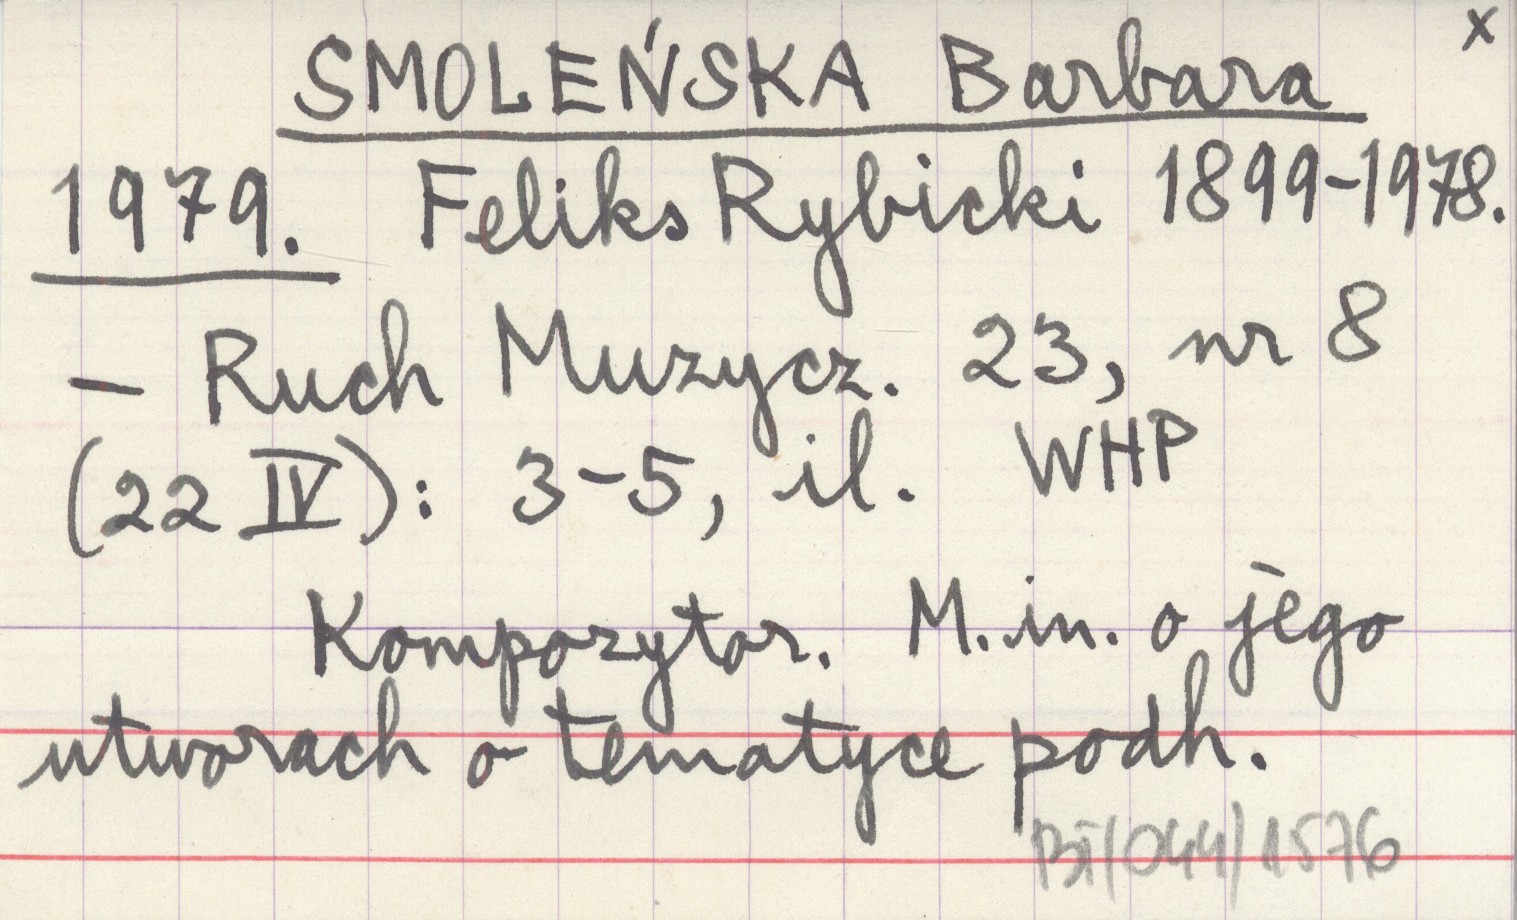 x
SMOLEŃSKA Barbara
1979. Feliks Rybicki 1899-1978.
- Ruch Muzycz. 23, nr 8
(22 IV): 3-5, il. WHP
Kompozytor. M.in. o jego
utworach o tematyce podh.
BT/044/1576